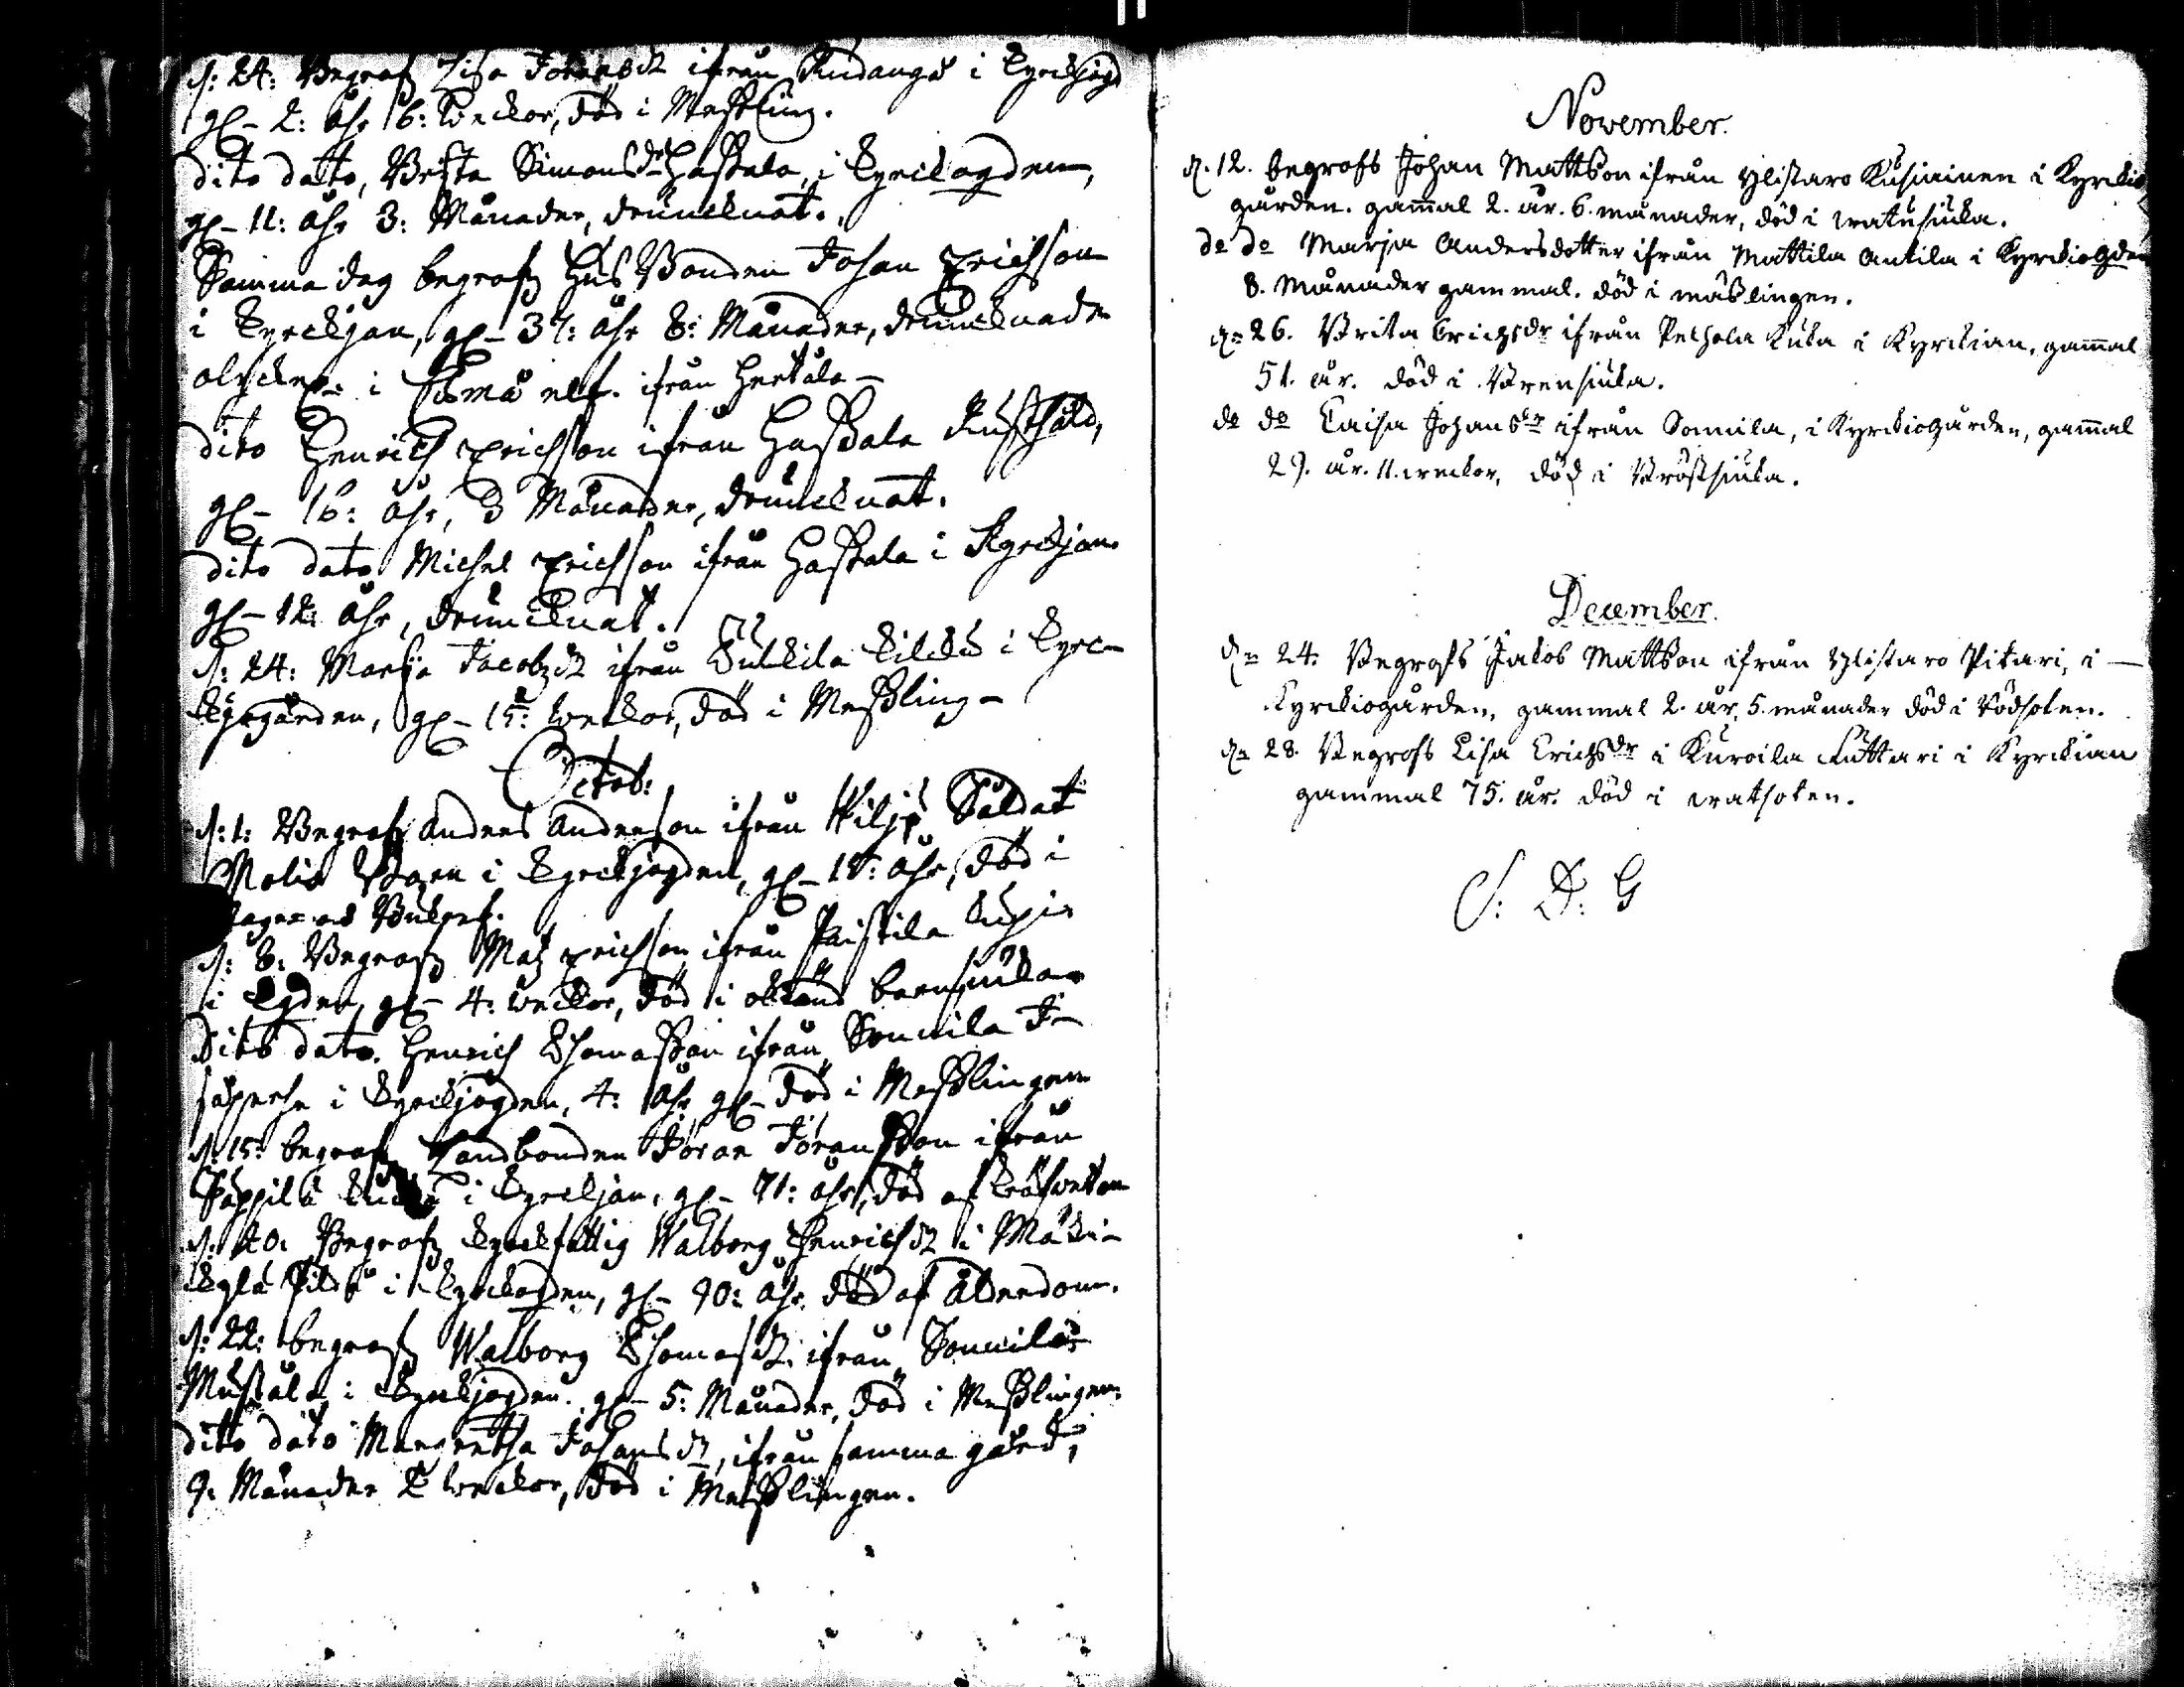 d: 24: Begrafs Lisa Johansdr ifrån Rudangå i Kyrckjogd
gl- 2: åhr 6: weckor, död i Messling.
dito datto, Brita Simonsdr Haskala, i Kyrckogden,
gl- 11: åhr 3: Månader, druncknat.
Samma dag begrafs Hus Bonden Johan Erichsson
i Kyrckjan, gl- 37: åhr 8: Månader, druncknade
olyckel: i Cumå elf. ifrån Hertåla-
dito Henrich Erichsson ifrån Haskala Rusthåld,
gl- 16: åhr, 3 Månader, druncknat.
dito dato Michel Erichsson ifrån Haskala i Kyrckjan
gl- 12: åhr, druncknat.
d: 24: Marja Jacobsdr ifrån Sukkila Kilcku i Kyrc-
kjogården, gl- 15: weckor, död i Messling-
Octob:
d: 1: Begrafs Anders Anderson ifrån Soldat
i Kyrckjogden, gl- 18: åhr, död i
d: 8: Begrafs Mats Erichsson ifrån
i Kgden, gl- 4: weckor, död i okänd barnsiukan
Dito dato. Henrich Thomasson ifrån Sonnila J-
i Kyrckjogden, 4: åhr gl- död i Messlingen
d: 15: begrafs Landbonden Jöran Jöransson ifrån
Pappila i Kyrckjan, gl- 71: åhr, död af
d: 20: Begrafs Kyrckfattig Walborg Henrichsdr i Mäki-
kylä i Kyrckogden, gl- 90: åhr död af Ålderdom.
d: 22: begrafs Walborg Thomasdr. ifrån Sonnila
i Kyrckjogden. gl- 5: Månader, död i Messlingen.
dito dato Margretha Johansdr, ifrån samma gård,
9. Månader 2 weckor, död i Messlingen.
November.
d. 12. begrofs Johan Mattsson ifrån Ylistaro Kusiainen i Kyrckio
gården. gammal 2. år. 6. månader, död i watusiuka.
do do Marja Andersdotter ifrån Mattila Antila i Kyrckiogden
8. Månader gammal. död i mäslingen.
dn 26. Brita Erichsdr ifrån Pelhola Kuka i Kyrckian, gammal
51. år. död i Brensiuka.
do do Caisa Johansdr ifrån Sonnila, i Kyrckiogården, gammal
29. år. 11. weckor, död i Bröstsiuka.
December.
dn 24. Begrofs Jakob Mattsson ifrån Ylistaro Pitari, i -
Kyrckiogården, gammal 2. år, 5. månader död i Rödsoten.
dn 28. Begrofs Lisa Erichsdr i Kuroila Kuttari i Kyrckian
gammal 75. år. död i watsoten.
S: D: G